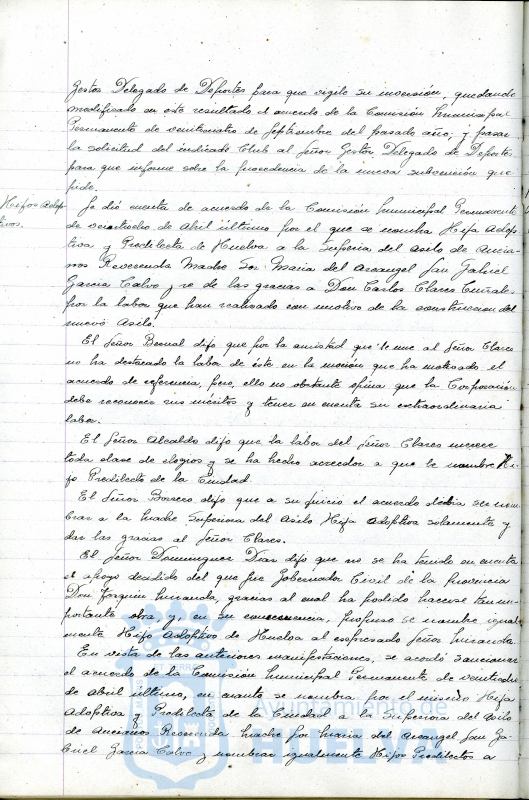 Gestor Delegado de Deportes para que vigile su inversión, quedando
modificado en este resultado el acuerdo de la Comisión Municipal
Permanente de veinticuatro de Septiembre del pasado año; y pasar
la solicitud del indicado Club al Señor Gestor Delegado de Deportes
para que informe sobre la procedencia de la nueva subvención que
pide.
Hijos Adop-
tivos.
Se dió cuenta de acuerdo de la Comisión Municipal Permanente
de veintiocho de Abril último por el que se nombra Hija Adop-
tiva y Predilecta de Huelva a la Superiora del Asilo de Ancia-
nos Reverenda Madre Sor María del Arcangel San Gabriel
Garcia Calvo y se de las gracias a Don Carlos Clares
por la labor que han realizado con motivo de la construcción del
nuevo Asilo.
El Señor Bernal dijo que por la amistad que le une al Señor Clares
no ha destacado la labor de éste en la moción que ha motivado el
acuerdo de referencia, pero, ello no obstante opina que la Corporación
debe reconocer sus méritos y tener en cuenta su extraordinaria
labor.
El Señor Alcalde dijo que la labor del Señor Clares merece
toda clase de elogios y se ha hecho acreedor a que le nombre Hi-
jo Predilecto de la Ciudad.
El Señor Borrero dijo que a su juicio el acuerdo debia ser nom-
brar a la Madre Superiora del Asilo Hija Adoptiva solamente y
dar las gracias al Señor Clares.
El Señor Dominguez Diaz dijo que no se ha tenido en cuenta
el apoyo decidido del que fue Gobernador Civil de la Provincia
Don Joaquin Miranda, gracias al cual ha podido hacerse tan im-
portante obra y, en su consecuencia, propuso se nombre igual-
mente Hijo Adoptivo de Huelva al expresado Señor Miranda.
En vista de las anteriores manifestaciones, se acordó sancionar
el acuerdo de la Comisión Municipal Permanente de veintiocho
de Abril último, en cuanto se nombra por el mismo Hija
Adoptiva y Predilecta de la Ciudad a la Superiora del Asilo
de Ancianos Reverenda Madre Sor Maria del Arcangel San Ga-
briel Garcia Calvo y nombrar igualmente Hijos Predilectos a
Ayuntamiento de
HUELVA